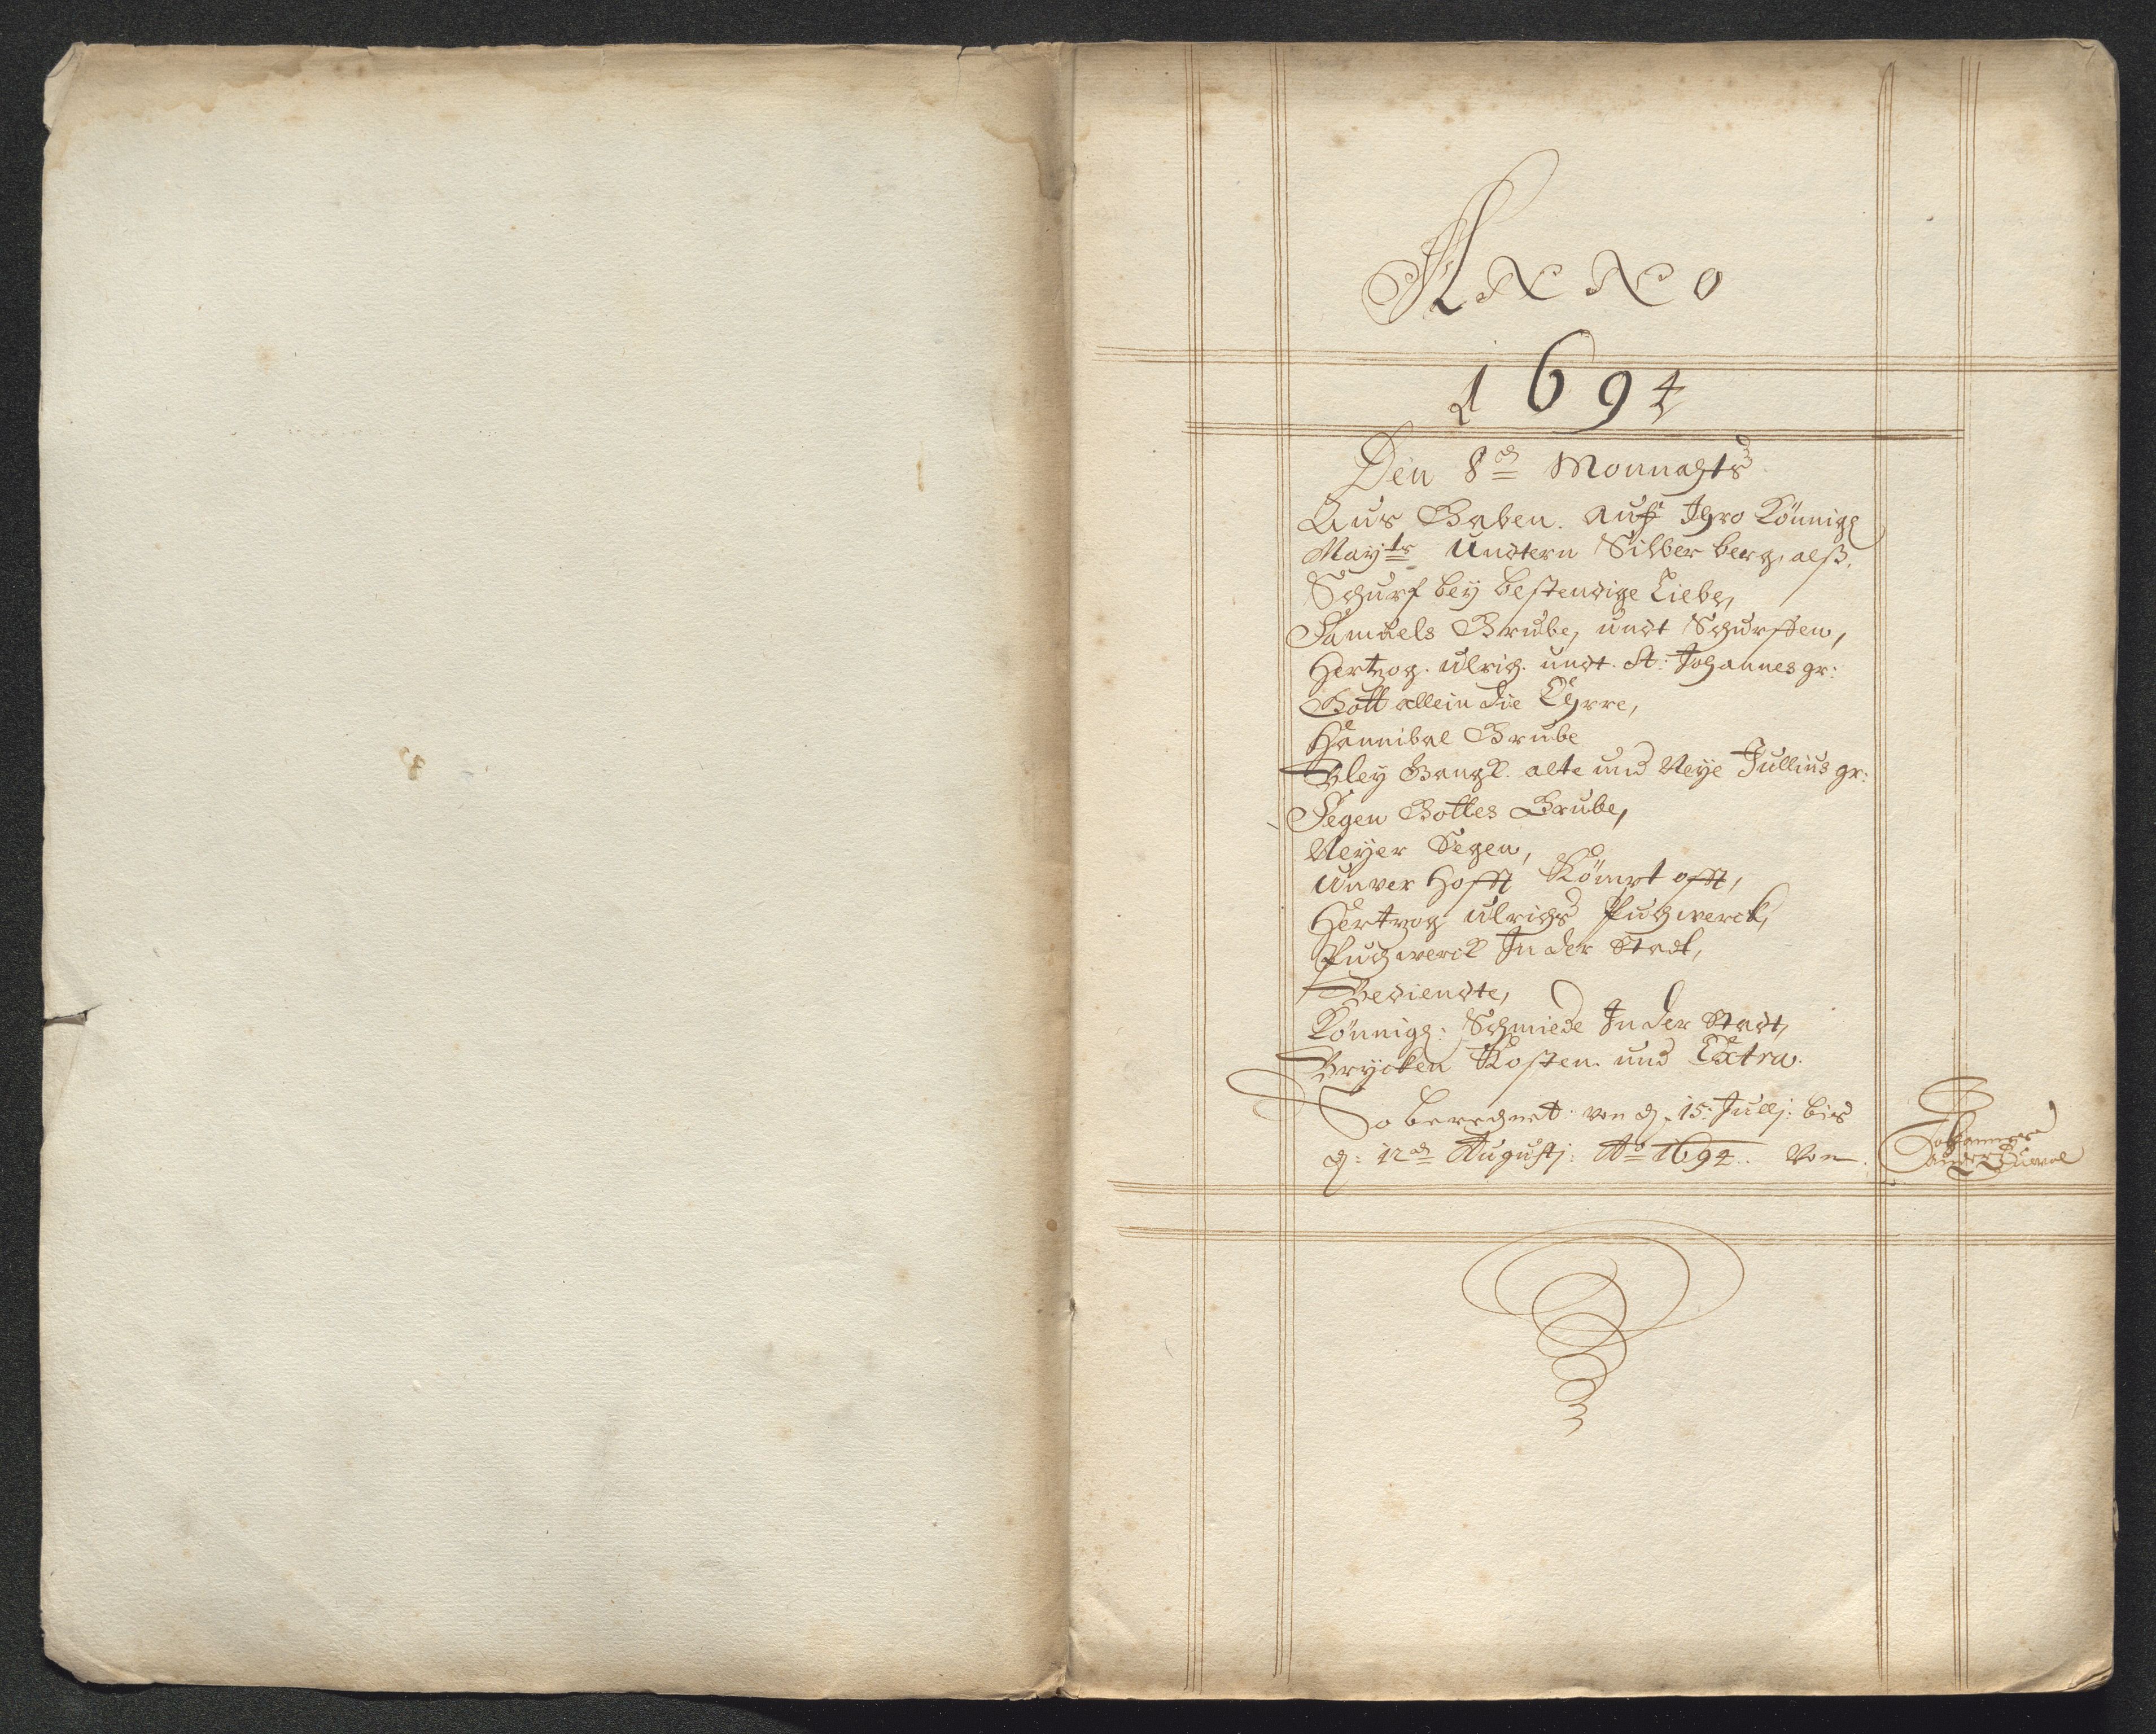 Anno
1694
Den 8ᵈ Monnahts
Aus Gaben. auf Ihro Könnigl
Mayᵗˢ Undtern Silber berg, alß,
Schurf bey bestendige Liebe,
Samuels Grube, undt Schurffen,
Hertzog. Ulrich. undt. St: Johannes gr:
Gott allein die Ehrre,
Hannibal Grube
Bley Gangk. alte und Neye Jullius gr:
Segen Gottes Grube,
Neyer Segen,
Unver Hofft Kömpt offt,
Hertzog Ulrichs Puchwerck,
Puchwerck In der Stadt,
Bediendte,
Könnigl: Schmiede In der Stadt,
Brücken Kosten. und Extra.
So berechnet: von d. 15: Jullj: bis
d: 12ᵈ Augustj: Aᵒ 1694.. Von
Johannes